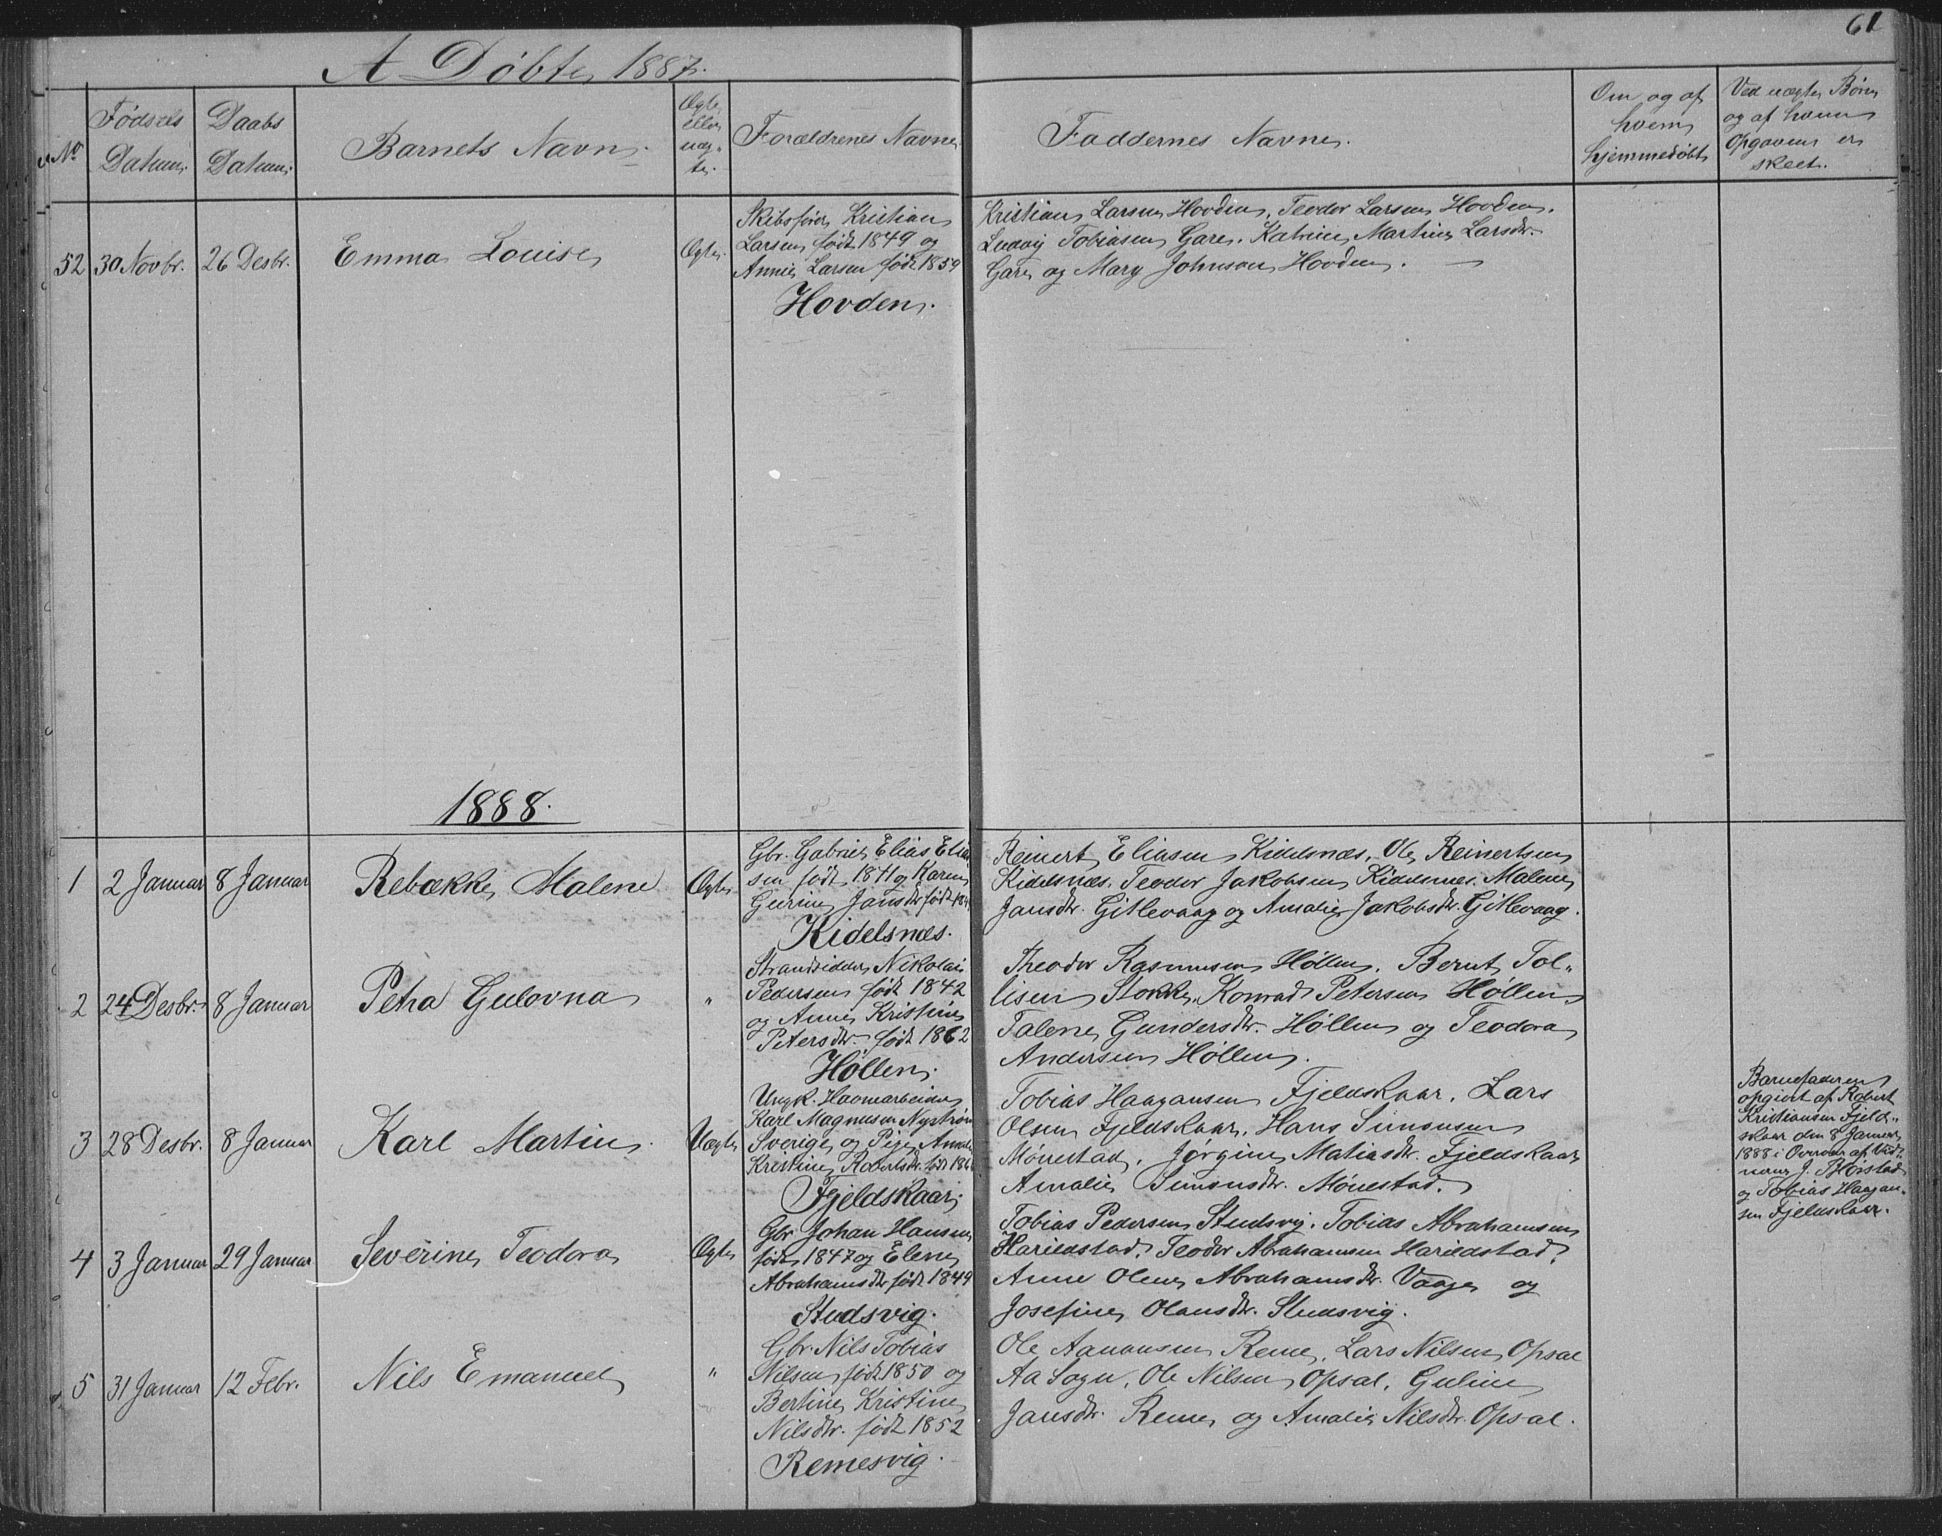 61
A Døbte 1887.
No
Fødsels Datum.
Daabs Datum.
Barnets Navn.
Ægte eller uæg-te.
Forældrenes Navne
Faddernes Navne.
Om og af hvem hjemmedøbt
Ved uægte Børn og af hvem Opgaven er skeet.
52
30 Novbr.
26 Desbr.
Emma Louise
Ægte.
Skibsfører Kristian
Larsen født 1849 og
Annie Larsen født 1859
Hovden.
Kristian Larsen Hovden, Teodor Larsen Hovden.
Ludvig Tobiasen Gare. Katrine Martine Larsdtr.
Gare og Mary Johnson Hovden.
1888.
1
2 Januar
8 Januar
Rebække Malene
Ægte
Gbr. Gabriel Elias Elia
sen født 18 og Karen
Gurine Jansdtr født
Kidelsnæs.
Reinert Eliasen Kidelsnæs, Ole Reinertsen
Kidelsnæs. Teodor Jakobsen Kidelsnæs. Malene
Jansdtr. Gitlevaag og Amalie Jakobsdtr. Gitlevaag.
2
24 Desbr.
8 Januar
Petra Gulovna
"
Strandsidder Nikolai
Pedersen født 1842
og Anne Kristine
Petersdtr. født 1862
Høllen.
Theodor Rasmusen Høllen, Bernt Tol-
lisen Stokke, Konrad Petersen Høllen
Talene Gundersdtr. Høllen og Teodora
Andersen Høllen.
3
28 Desbr.
8 Januar
Karl Martin.
Uægte
Ungk. Havnearbeider
Karl Magnusen Nystrøm
Sverige og Pige
Kristine Robertsdtr. født 186
Fjeldskaar.
Tobias Haagansen Fjeldskaar, Lars
Olsen Fjeldskaar, Hans Simonsen
Mønestad, Jørgine Matiasdtr. Fjeldskaar
Amalie Simonsdtr. Mønestad.
Barnefaderen
opgivet af Robert
Kristiansen Fjeld-
skaar den 8 Januar
1888 i Overvær af Vid-
nerne J. Bjørstad
og Tobias Haagan-
sen Fjeldskaar.
4
3 Januar
29 Januar
Severine Teodora
Ægte
Gbr Johan Hansen
født 1847 og Elene
Abrahamsdtr født 1849
Studsvig.
Tobias Pedersen Studsvig. Tobias Abrahamsen
Harildstad, Teodor Abrahamsen Harildstad,
Anne Olene Abrahamsdtr. Vaage og
Josefine Olausdtr. Studsvig.
5
31 Januar
12 Febr.
Nils Emanuel
"
Gbr. Nils Tobias
Nilsen født 1850 og
Bertine Kristine
Nilsdtr. født 1852
Remesvig.
Ole Aanonsen Reme, Lars Nilsen Opsal
Aa Sogn, Ole Nilsen Opsal, Guline
Jansdtr. Reme og Amalie Nilsdtr. Opsal.